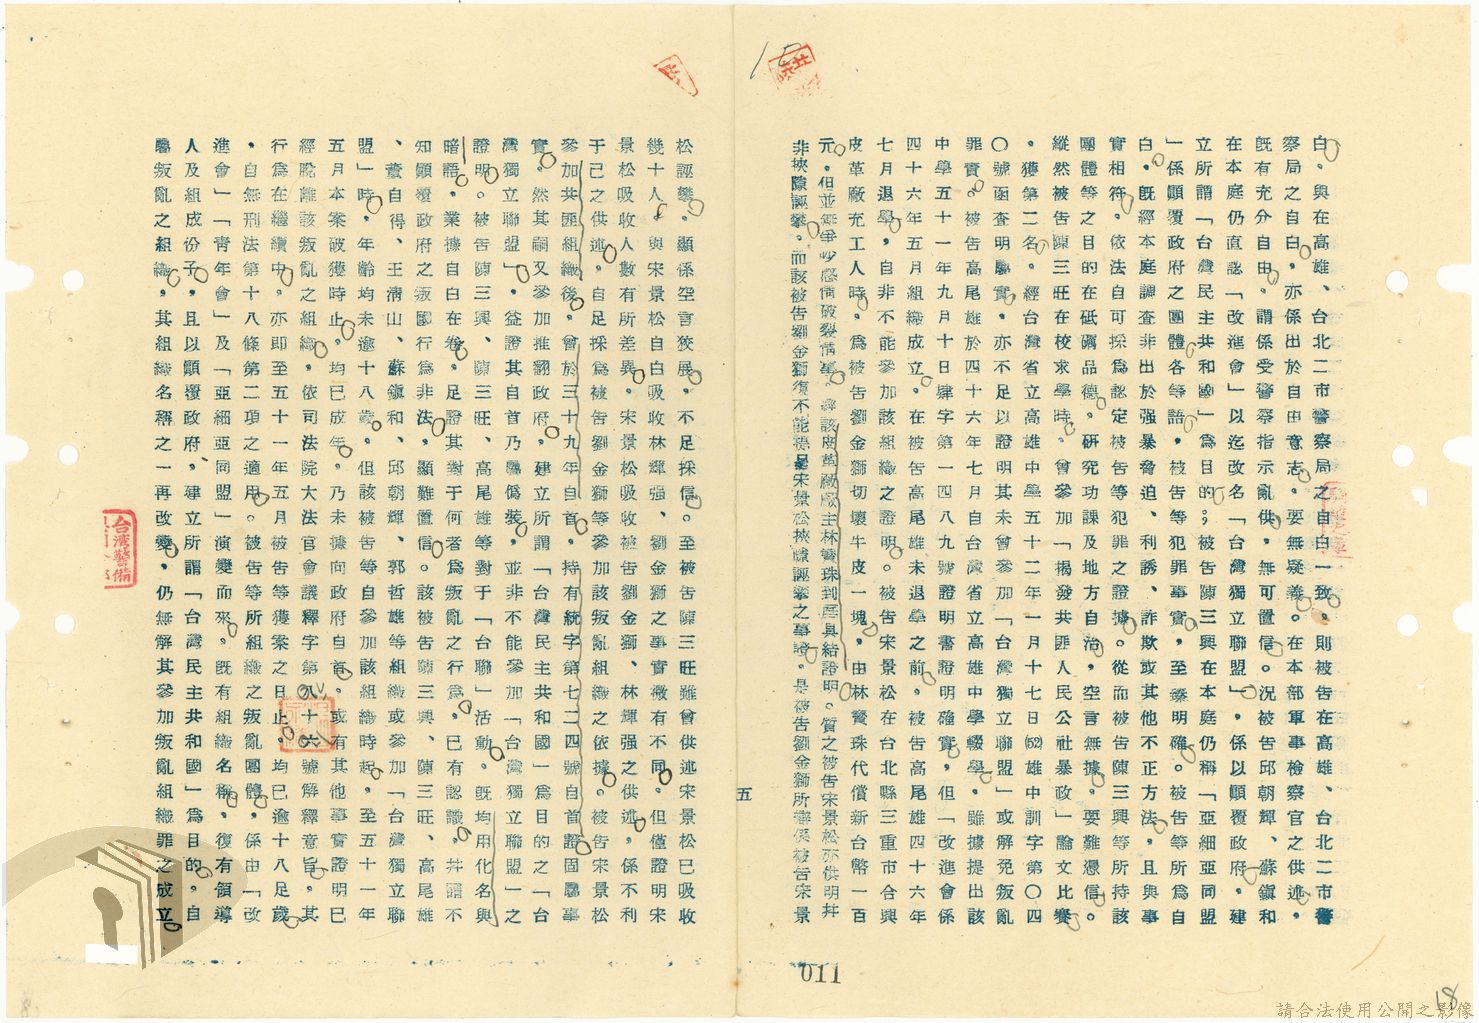 白。與在高雄、台北二市警察局之自白一致，則被告在高雄、台北二市警
察局之自白，亦係出於自由意志。要無疑義。在本部軍事檢察官之供述，
既有充分自由。謂係受警察指示亂供，無可置信。況被告邱朝輝、蘇鎭和
在本庭仍直認「改進會」以迄改名「台灣獨立聯盟」，係以顛覆政府，建
立所謂「台灣民主共和國」爲目的。；被告陳三興在本庭仍稱「亞細亞同盟
」係顛覆政府之團體各等語，被告等犯罪事實，至臻明確。被告等所爲自
白，既經本庭調査非出於强暴脅迫、利誘、詐欺或其他不正方法，且與事
實相符。依法自可採爲認定被告等犯罪之證據。從而被告陳三興等所持該
團體等之目的在砥礪品德，硏究功課及地方自治，空言無據。要難憑信。
縱然被告陳三旺在校求學時。曾參加「揭發共匪人民公社暴政」論文比賽
。獲第二名。經台灣省立高雄中學五十二年一月十七日(52)雄中訓字第〇四
〇號函査明屬實，亦不足以證明其未曾參加「台灣獨立聯盟」或解免叛亂
罪實。被告高尾雄於四十六年七月自台灣省立高雄中學輟學，雖據提出該
中學五十一年九月十日肆字第一四八九號證明書證明確實，但「改進會係
四十六年五月組織成立。在被告高尾雄未退學之前，被告高尾雄四十六年
七月退學，自非不能參加該組織之證明。被告宋景松在台北縣三重市合興
皮革廠充工人時，爲被告劉金獅切壞牛皮一塊，由林驚珠代償新台幣一百
元。但並無爭吵感情破裂情事。經該皮革廠廠主林驚珠到庭具結證明。質之被告宋景松亦供明幷
非挾隙誣攀。而該被告劉金獅復不能提出宋景松挾嫌誣攀之事證。是被告劉金獅所辯係被告宋景
五
011
松誣攀，顯係空言狡展，不足採信。至被告陳三旺雖曾供述宋景松已吸收
幾十人，與宋景松自白吸收林輝强、劉金獅之事實微有不同。但僅證明宋
景松吸收人數有所差異。宋景松吸收被告劉金獅、林輝强之供述，係不利
于已之供述，自足採爲被告劉金獅等參加該叛亂組織之依據。被告宋景松
參加共匪組織後，曾於三十九年自首，持有統字第七二四號自首證固屬事
實。然其嗣又參加推翻政府，建立所謂「台灣民主共和國」爲目的之「台
灣獨立聯盟」，益證其自首乃屬僞裝，並非不能參加「台灣獨立聯盟」之
證明。被告陳三興、陳三旺、高尾雄等對于「台聯」活動。既均用化名與
暗語，業據自白在卷，足證其對于何者爲叛亂之行爲，已有認識，幷謂不
知顛覆政府之叛國行爲非法，顯難置信。該被告陳三興、陳三旺、高尾雄
、董自得、王清山、蘇鎭和、邱朝輝、郭哲雄等組織或參加「台灣獨立聯
盟」時，年齡均未逾十八歲。但該被告等自參加該組織時起，至五十一年
五月本案破獲時止。均已成年。乃未據向政府自首。或有其他事實證明已
經脫離該叛亂之組織，依司法院大法官會議釋字第六十八號解釋意旨，其
行爲在繼續中，亦即至五十一年五月被告等獲案之日止。均已逾十八足歲
，自無刑法第十八條第二項之適用。被告等所組織之叛亂團體，係由「改
進會」「青年會」及「亞細亞同盟」演變而來。既有組織名稱，復有領導
人及組成份子，且以顛覆政府，建立所謂「台灣民主共和國」爲目的，自
屬叛亂之組織，其組織名稱之一再改變，仍無解其參加叛亂組織罪之成立
台灣警備
18
請合法使用公開之影像